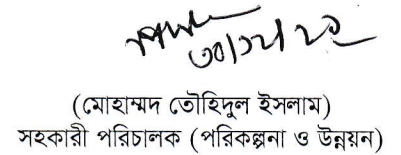 ৩০/১২/২১
(মোহাম্মদ তৌহিদুল ইসলাম)
সহকারী পরিচালক (পরিকল্পনা ও উন্নয়ন)